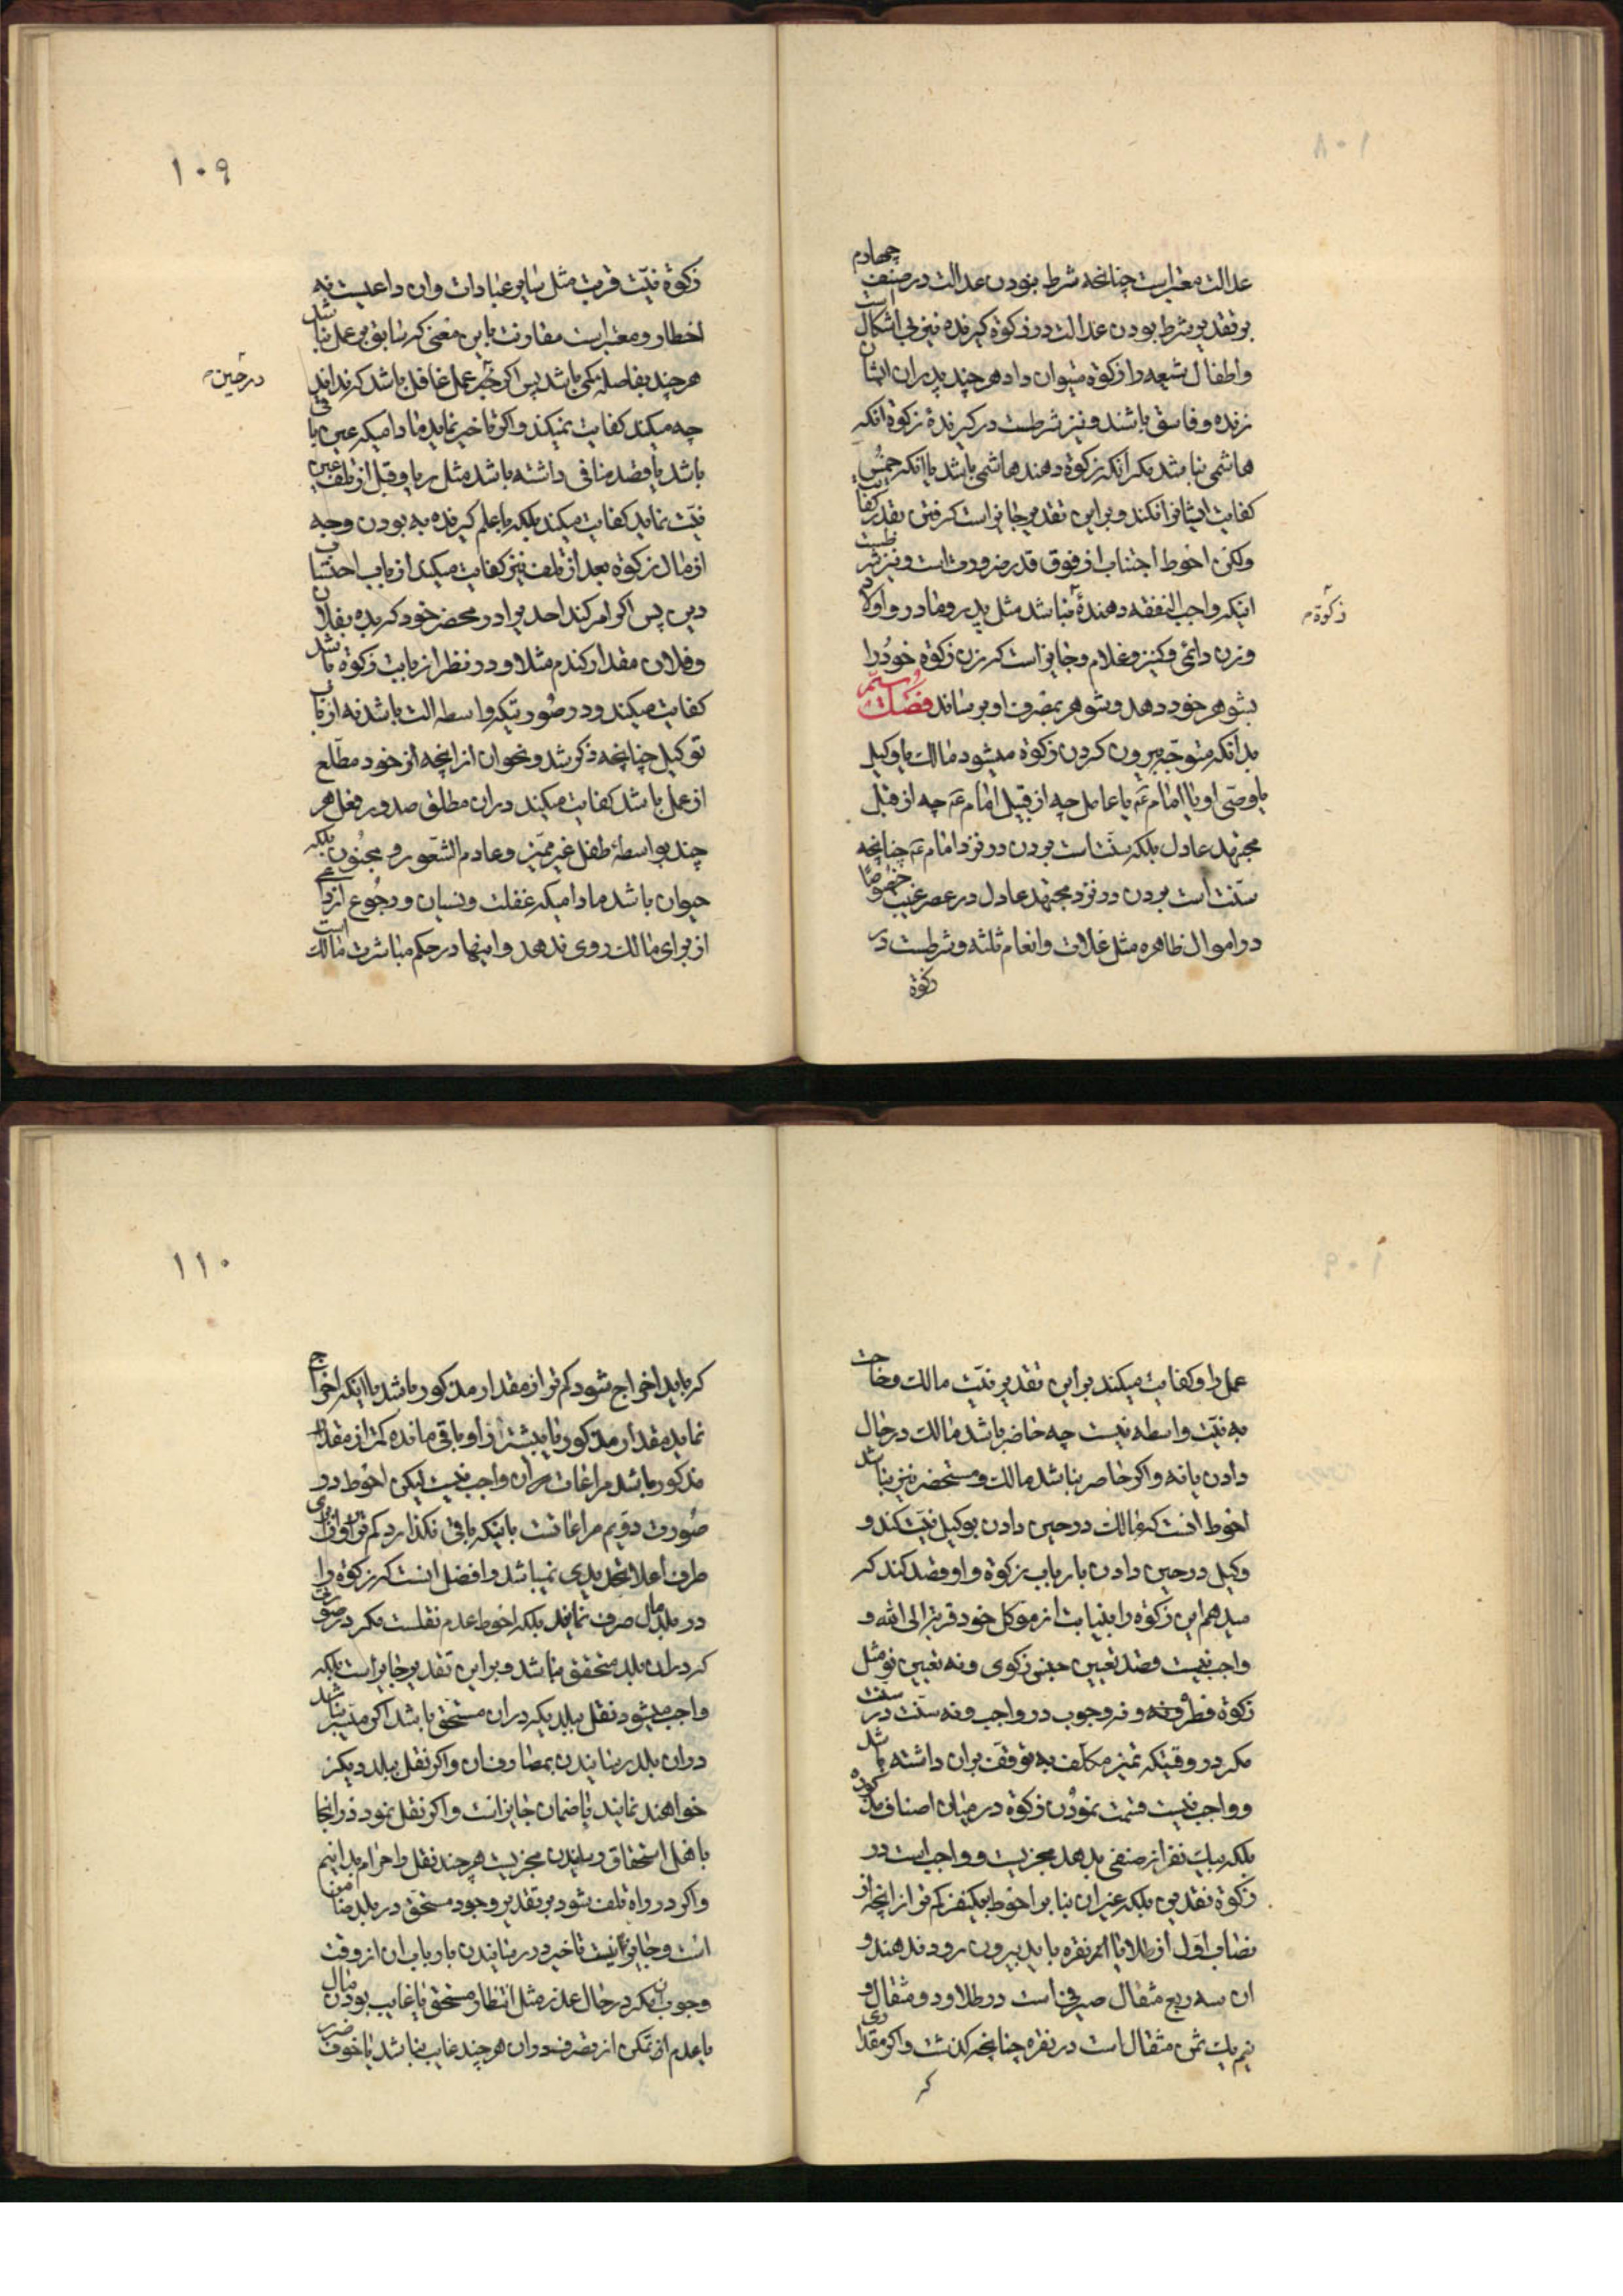 عدالت معتبر است چنانچه شرط نبودن عدالت در صنف چهارم
بر تقدیر شرط بودن عدالت در زکوة گیرنده نیز بی اشکال است
و اطفال شیعه را زکوة میتوان داد هر چند پدران ایشان
زنده و فاسق باشند و نیز شرطست در گیرندۀ زکوة انکه
هاشمی نباشد مگر انکه زکوة دهند هاشمی باشد یا انکه خمس
کفایت ایشانرا نکند و بر این تقدیر جایز است گرفتن بقدر کفایت
ولکن احوط اجتناب از فوق قدر ضرورتست و نیز شرطست
اینکه واجب النفقه دهندۀ نباشد مثل پدر و مادر و اولاد
زکوة م
و زن دائمی و کنیز و غلام و جایز است که زن زکوة خود را
بشوهر خود دهد و شوهر بمصرف او برساند فصل ستّم
بدانکه متوجّه بیرون کردن زکوة میشود مالک یا وکیل
یا وصّی او یا امام عَم یا عامل چه از قبیل امام عَم چه از قبل
مجتهد عادل بلکه سنّت است بردن در نزد امام عَم چنانچه
سنّت است بردن در نزد مجتهد عادل در عصر غیبت خصوصًا
در اموال ظاهره مثل غلات و انعام ثلثه و شرطست در
زکوة
۱۰۹
زکوة نیّت قربت مثل سایر عبادات و ان داعیست نه
اخطار و معتبر است مقارنت باین معنی که سابق بر عمل نباشد
هر چند بفاصله کمی باشد پس اگر عمل غافل باشد که نداند
در حین م
چه میکند کفایت نمیکند و اگر تاخیر نماید مادامیکه عین باقی
باشد یا قصد منافی داشته باشد مثل ریا و قبل از تلف عین
نیّت نماید کفایت میکند بلکه با علم گیرنده به بودن وجه
از مال زکوة بعد از تلف نیز کفایت میکند از باب احتساب
دین پس اگر امر کند احدیرا در محضر خود که بده بفلان
و فلان مقدار گندم مثلا و در نظر از بابت زکوة باشد
کفایت میکند و در صورتیکه واسطه الت باشد نه از باب
توکیل چنانچه ذکر شد و نحو ان از انچه از خود مطّلع
از عمل باشد کفایت میکند در ان مطلق صدور فعل هر
چند بواسطۀ طفل غیر ممیّز و عادم الشّعور و مجنون بلکه
حیوان باشد مادامیکه غفلت و نسیان و رجوع از داعی
از برای مالک روی ندهد و اینها در حکم مباشرت مالک است
عمل را و کفایت میکند بر این تقدیر نیّت مالک و حاجت
به نیّت واسطه نیست چه حاضر باشد مالک در حال
دادن یا نه و اگر حاضر نباشد مالک و مستحضر نیز نباشد
احوط انست که مالک در حین دادن بوکیل نیّت کند و
وکیل در حین دادن بارباب زکوة و او قصد کند که
میدهم این زکوة را بنیابت از موکل خود قربة الی الله و
واجب نیست قصد تعیین جنس زکوی و نه تعیین نوع مثل
زکوة فطره و نه وجوب در واجب و نه سنّت در سنت
مگر در وقتیکه تمیز مکلّف به توقف بران داشته باشد
و واجب نیست قسمت نمودن زکوة در میان اصناف مذکوره
بلکه بیک نفر از صنفی بدهد مجزیست و واجب است در
زکوة نقدین بلکه غیر ان بنا بر احوط بیکنفر کم تر از انچه از
نصاب اوّل از طلا یا از نقره باید بیرون رود ندهند و
ان سه ربع مثقال صیرفی است در طلا و دو مثقال و
نیم یک ثمن مثقال است در نقره چنانچه گذشت و اگر مقداری
که
۱۱۰
که باید اخراج شود کم تر از مقدار مذکور باشد یا اینکه اخراج
نماید مقدار مذکور یا بیشتر از او باقی مانده کمتر از مقدار
مذکور باشد مراعات بران واجب نیست لیکن احوط در
صورت دوّیم مراعاتست باینکه باقی نگذارد کم تر از او از برای
طرف اعلا تحدیدی نمیباشد و افضل انست که زکوة را
در بلد مال صرف نمایند بلکه احوط عدم نقلست مگر در صورتی
که در ان بلد مستحق نباشد و بر این تقدیر جایز است بلکه
واجب میشود نقل ببلدیکه در ان مستحق باشد اگر میّسر نباشد
در ان بلد رسانیدن بمصارف ان و اگر نقل ببلد دیگر
خواهند نمایند با ضمان جایز است و اگر نقل نمود در انجا
باهل استحقاق رسانیدن مجزیست هر چند نقل را حرام بدانیم
و اگر در راه تلف شود بر تقدیر وجود مستحق در بلد ضامن
است و جایز نیست تاخیر در رسانیدن بارباب ان از وقت
وجوب ان مگر در حال عذر مثل انتظار مستحق یا غایب بودن مال
یا عدم تمکن از تصرف در ان هر چند غایب نباشد یا خوف ضرر